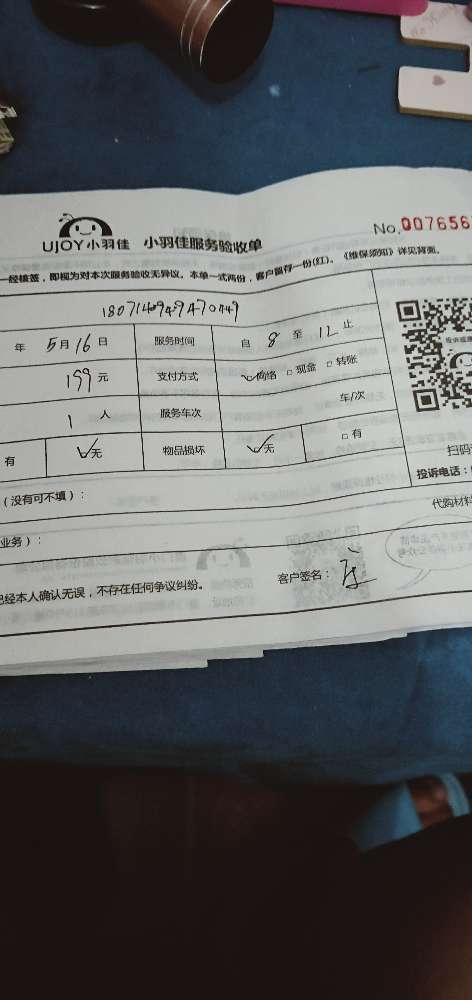 UJOY小羽佳 小羽佳服务验收单 No.007656
一经核签，即视为对本次服务验收无异议。本单一式两份，客户留存一份(红)。《维保须知》详见背面。
年 5月16日 服务时间 自 8 至 12 止
199元 支付方式 ☑网络 □现金 □转账
1 人 服务车次 车/次
有 ☑无 物品损坏 ☑无 □有
扫码
投诉电话：
（没有可不填）：
代购材料
业务）：
已经本人确认无误，不存在任何争议纠纷。 客户签名：